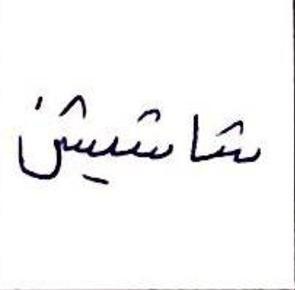 شاشيشن